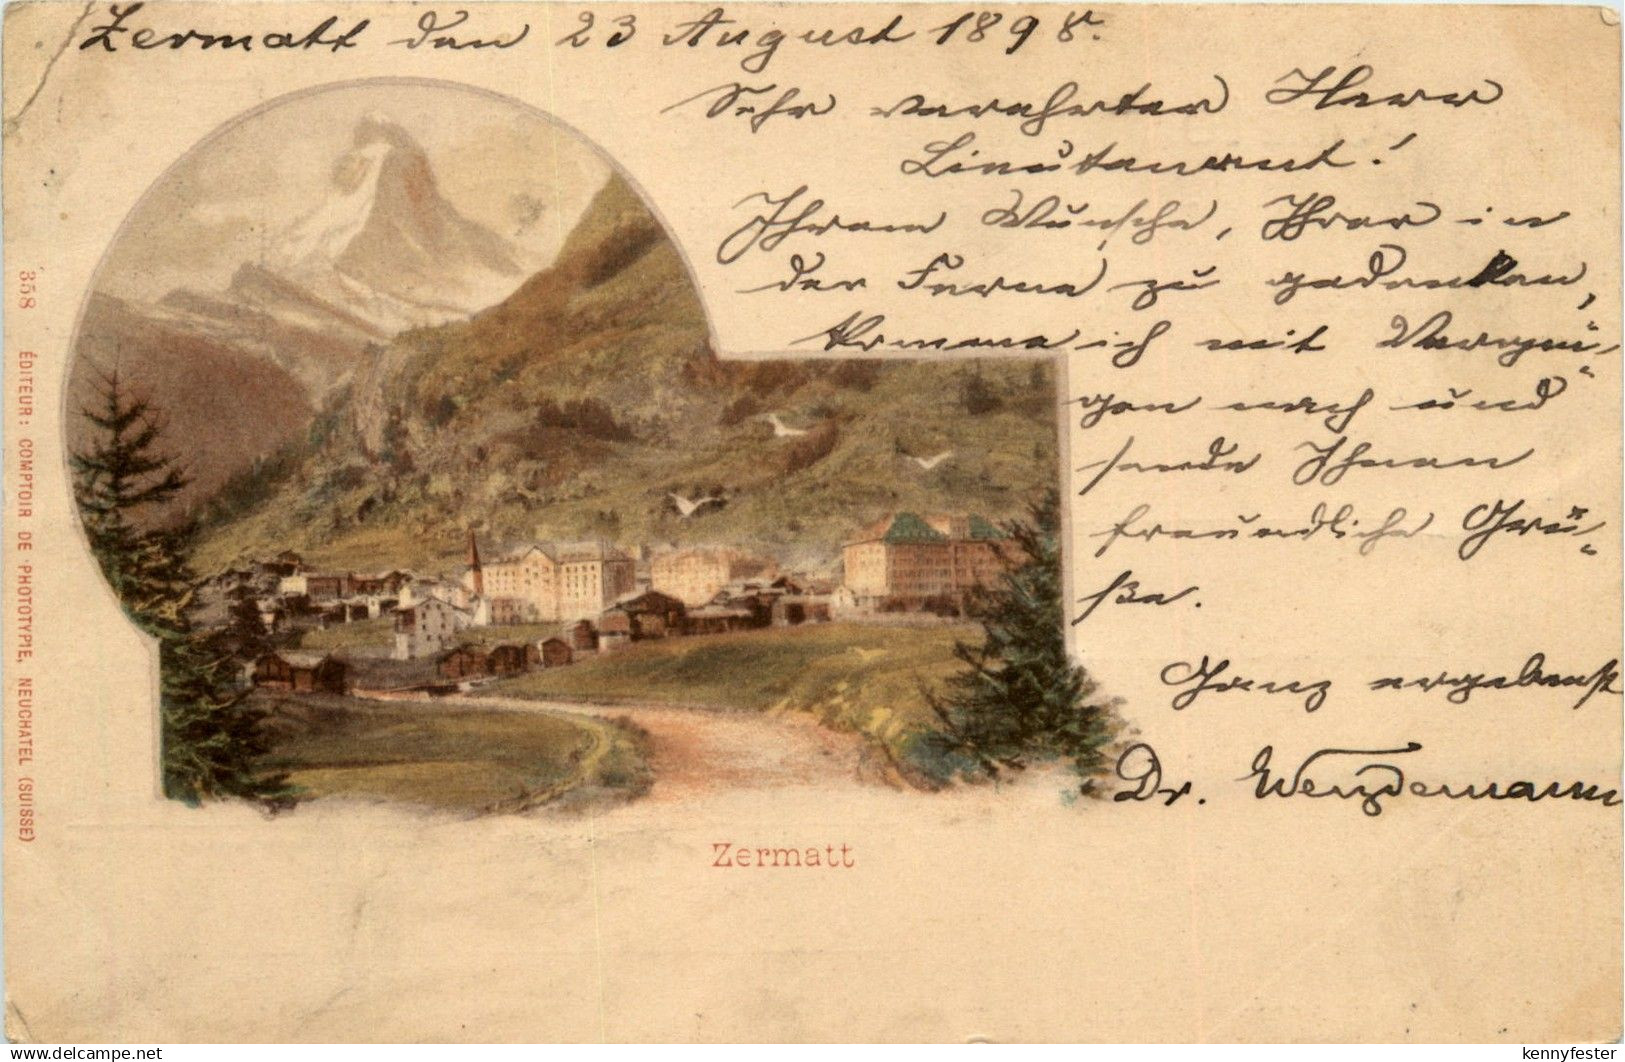 Zermatt den 23 August 1898.
Sehr verehrter Herr
Lieutenant!
Ihrem Wunsche, Ihrer in
der Ferne zu gedenken,
komme ich mit Vergnü-
gen nach und
sende Ihnen
freundliche Grü-
ße.
Ganz ergebenst
Dr.
Zermatt
358 ÉDITEUR: COMPTOIR DE PHOTOTYPIE, NEUCHATEL (SUISSE)
www.delcampe.net
kennyfester